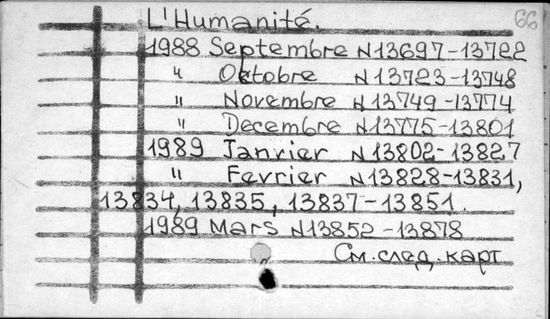 66
L'Humanité.
1988 Septembre N13697-13722
" Oktobre N13723-13748
" Novembre N13749-13774
" Decembre N13775-13801
1989 Janvier N13802-13827
" Fevrier N13828-13831,
13834, 13835, 13837-13851.
1989 Mars N13852-13878
См. след. карт